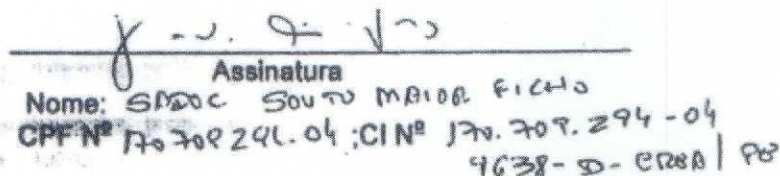 Assinatura
Nome: SADOC SOUTO MAIOR FILHO
CPF Nº 170.709.294-04 ;CI Nº 170.709.294-04
4638-D-CREA|PB